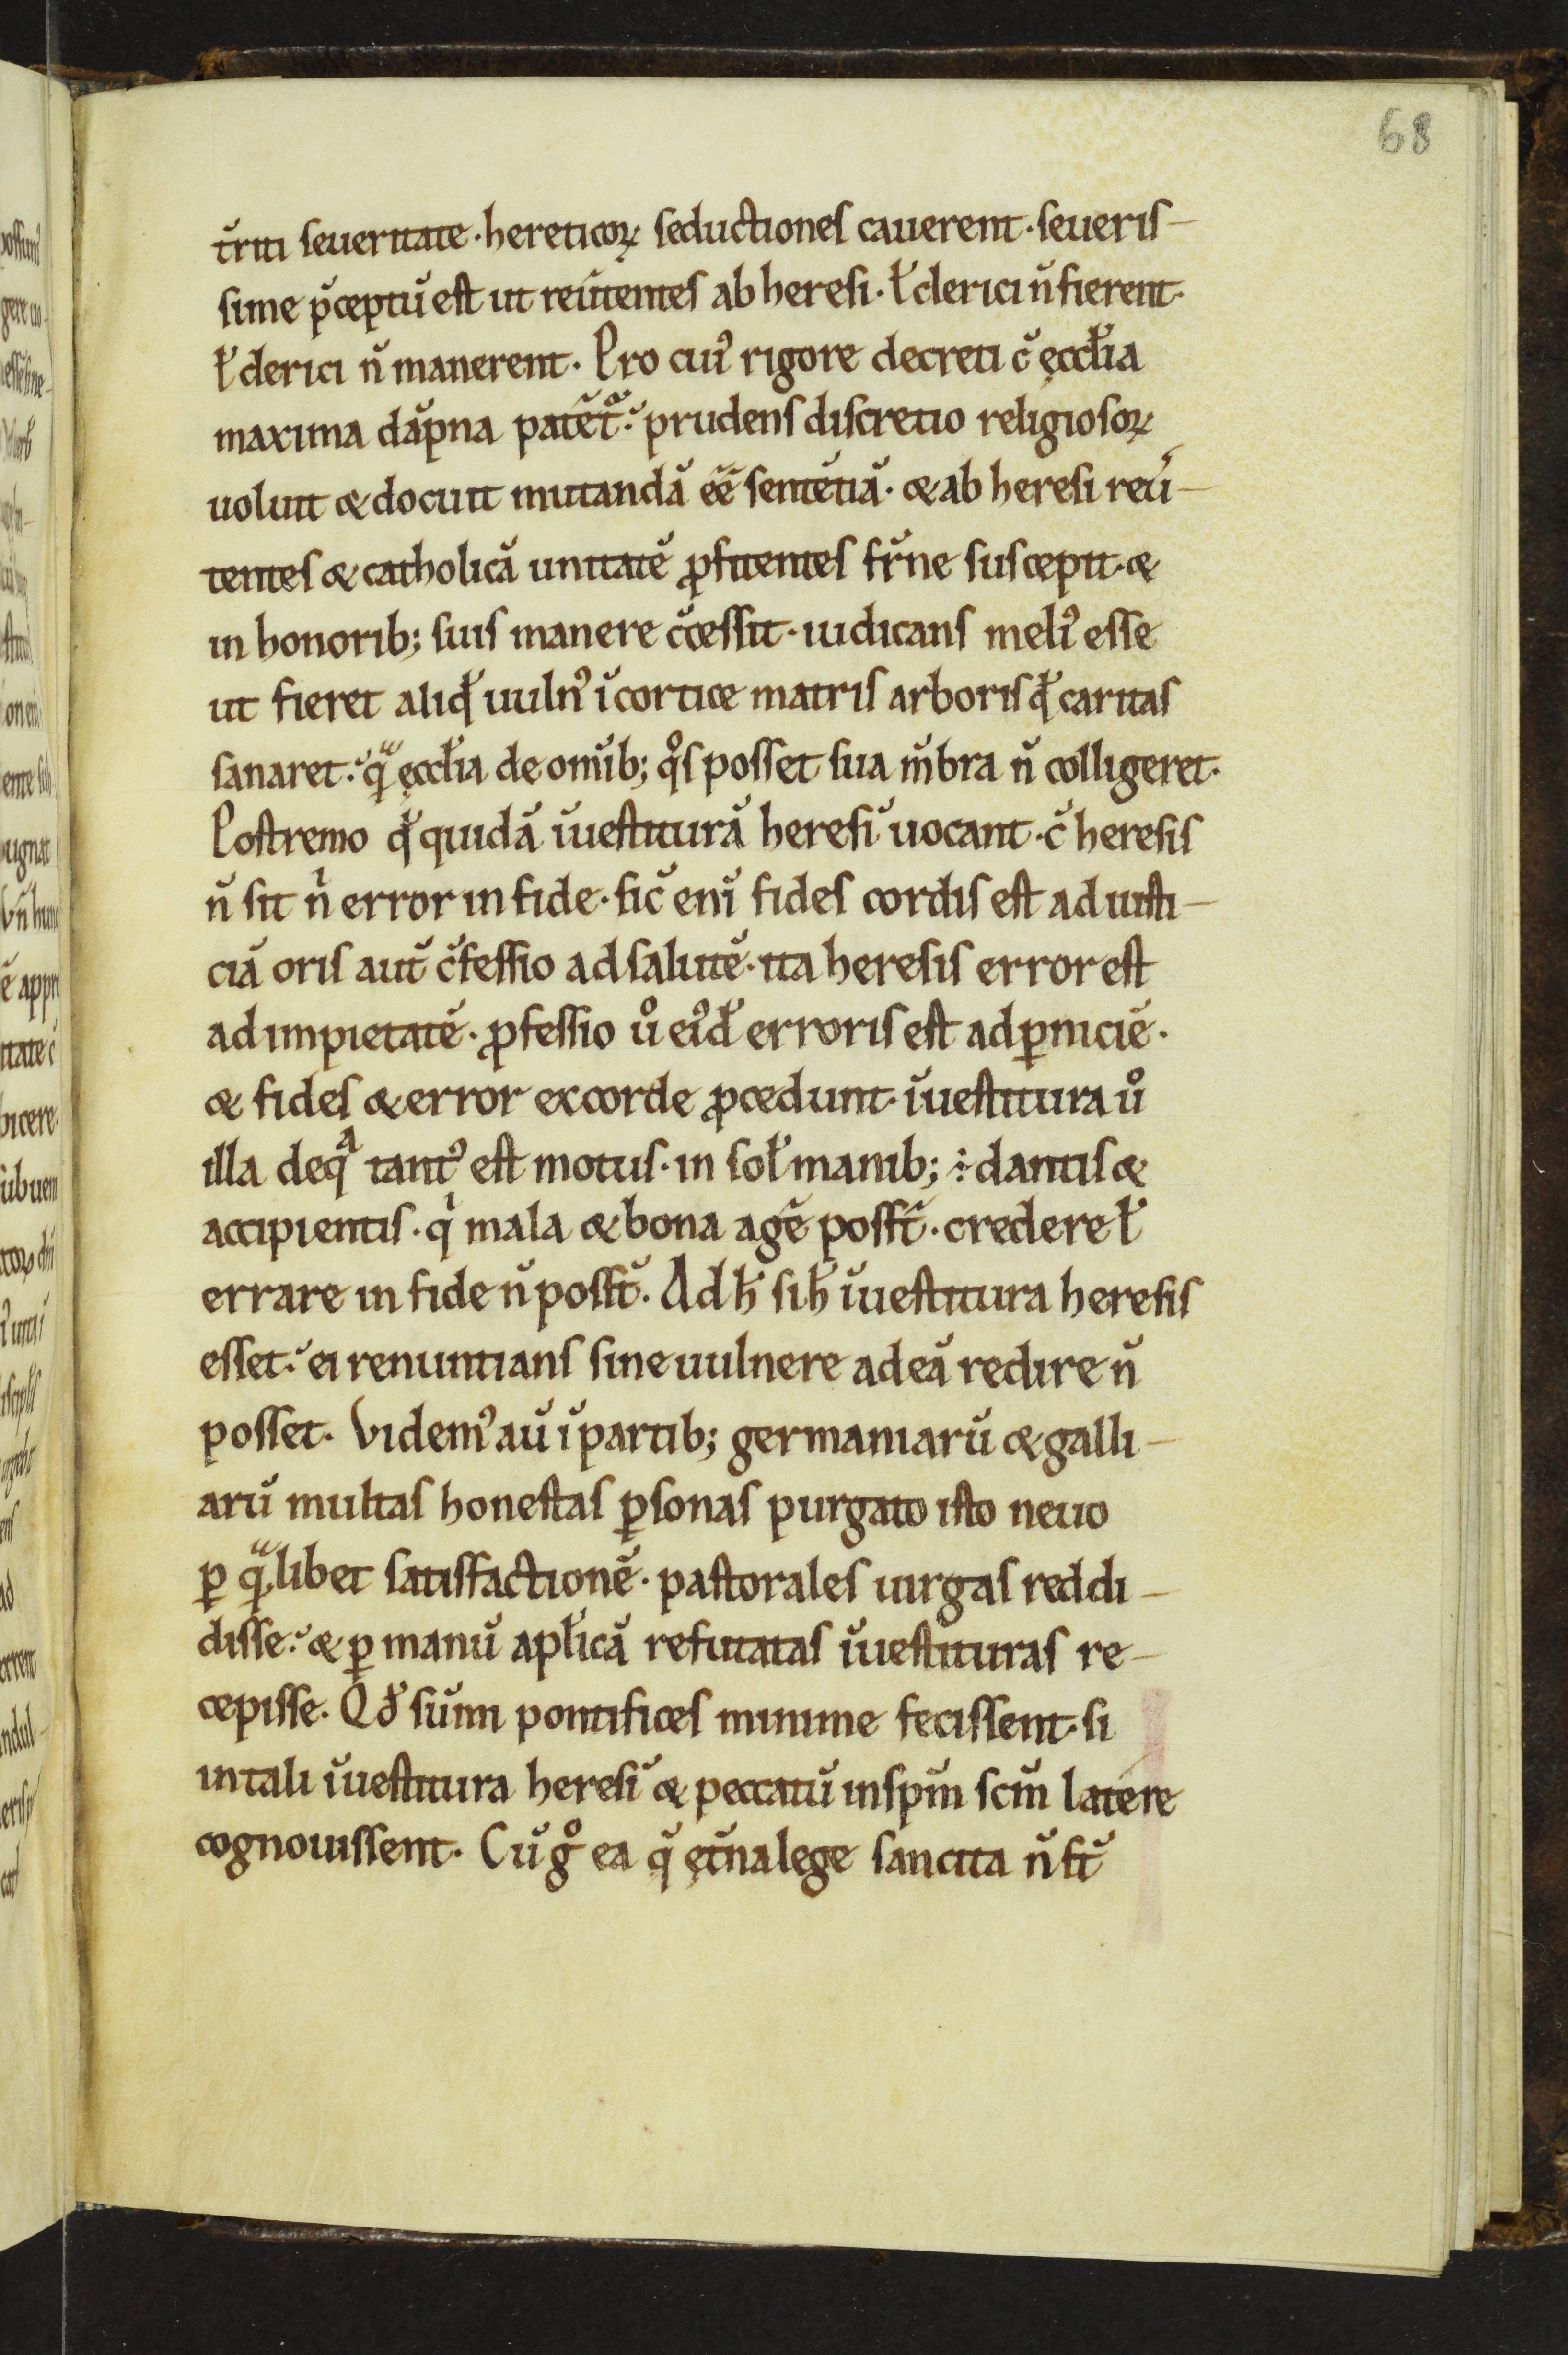 68
t̄riti seueritate · hereticoꝝ seductiones cauerent · seueris-
sime p̄ceptū est ut reūtentes ab heresi · ł clerici n̄ fierent ·
ł clerici n̄ manerent · Pro cuiꝰ rigore decreti c̄ ęccłia
maxima dāpna patēt᷑ : prudens discretio religiosoꝝ
uoluit & docuit mutandā ēē sentētiā · & ab heresi reū-
tentes & catholicā unitatē ꝓfitentes fr̄ne suscepit · &
in honorib; suis manere c̄cessit · iudicans meliꝰ esse
ut fieret aliqđ uulnꝰ ī cortice matris arboris qđ caritas
sanaret : qͣ̄ ęccłia de omīb; qͦs posset sua m̄bra n̄ colligeret ·
Postremo qđ quidā īuestiturā heresī uocant · c̄ heresis
n̄ sit nͥ error in fide · sic̄ enī fides cordis est ad iusti-
ciā oris aut̄ c̄fessio ad salutē · ita heresis error est
ad impietatē · ꝓfessio uͦ eiꝰđ erroris est ad ꝑniciē ·
& fides & error ex corde ꝓcedunt · īuestitura uͦ
illa de qͣ tantꝰ est motus · in soł manib; ÷ dantis &
accipientis · qͥ mala & bona agē poss̄t · credere ł
errare in fide n̄ poss̄t · Ad ħ si ħ īuestitura heresis
esset : ei renuntians sine uulnere ad eā redire n̄
posset · Videmꝰ aū ī partib; germaniarū & galli-
arū multas honestas ꝑsonas purgato isto neuo
ꝑ qͣ̄libet satisfactionē · pastorales uirgas reddi-
disse : & ꝑ manū apłicā refutatas īuestituras re-
cepisse · Qđ sūmi pontifices minime fecissent · si
in tali īuestitura heresī & peccatū in sp̄m sc̄m latere
cognouissent · Cū gͦ ea q̄ ęt̄na lege sancita n̄ st̄